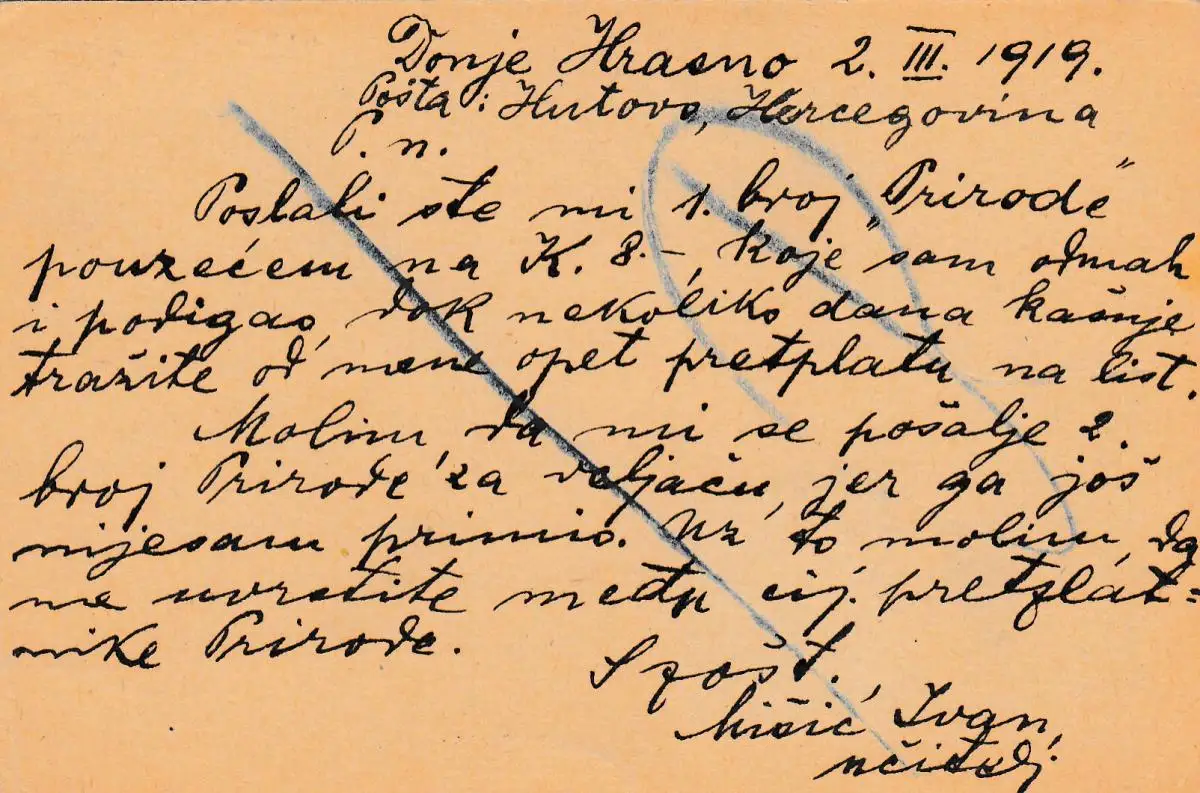 Donje Hrasno 2. III. 1919.
Pošta: Hutovo, Hercegovina
P. n.
Poslali ste mi 1. broj „Prirode“
pouzećem na K. 8.-, koje sam odmah
i podigao, dok nekoliko dana kašnje
tražite od mene opet pretplatu na list.
Molim, da mi se pošalje 2.
broj Prirode za veljaču, jer ga još
nijesam primio. Uz to molim, da
me uvrstite među cij. pretplat=
nike Prirode.
S pošt.
Mišić Ivan,
učitelj.